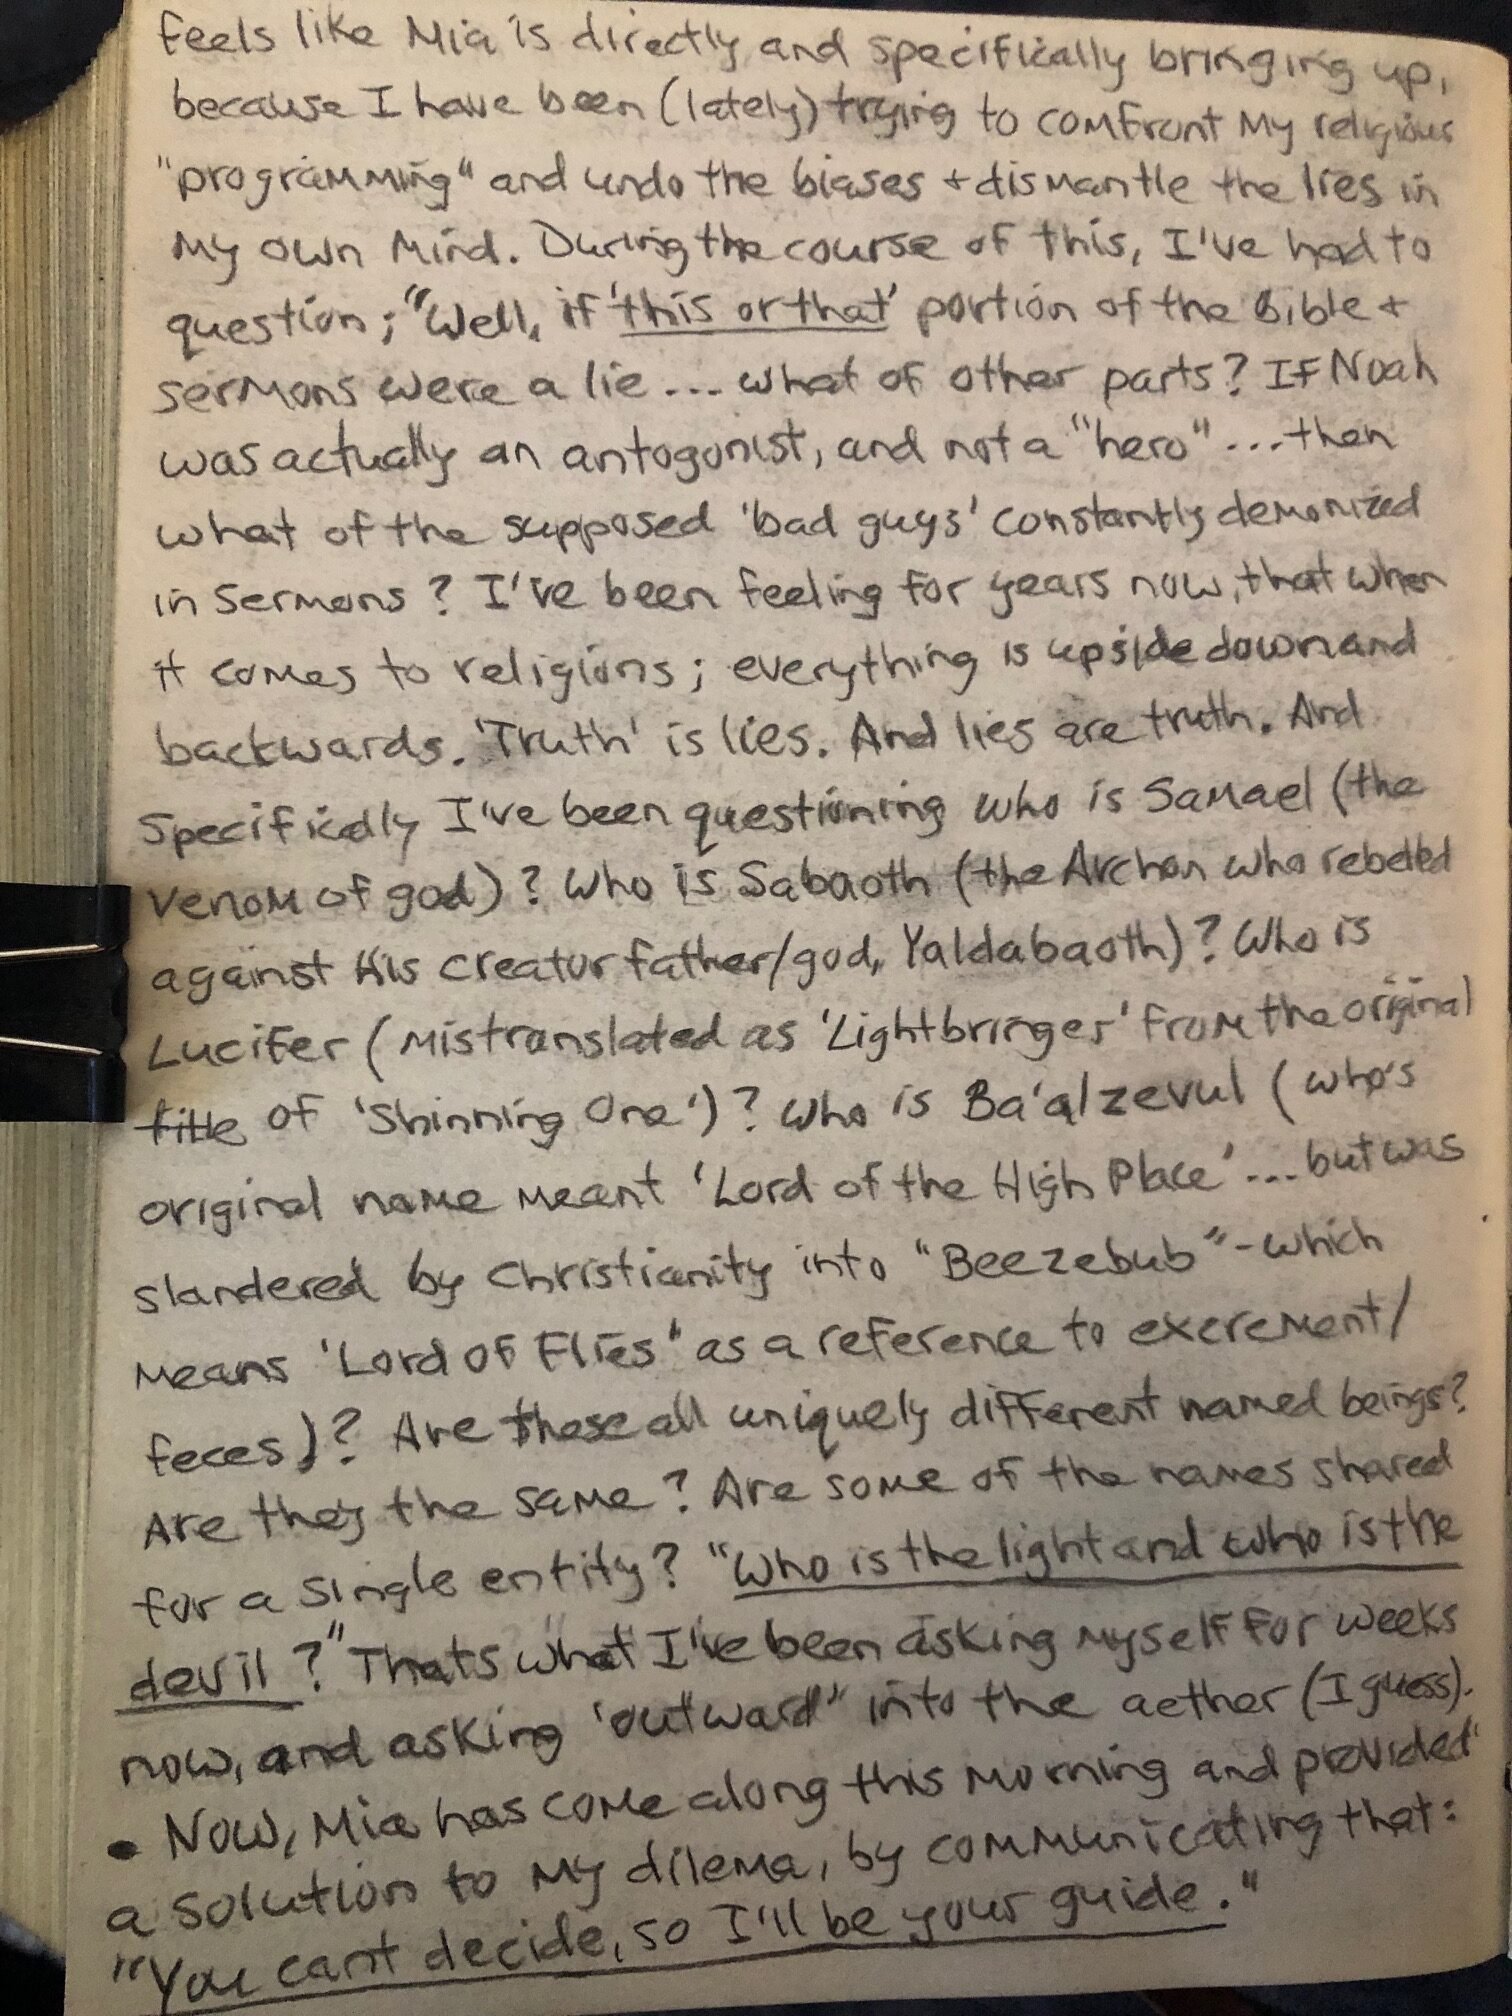 feels like Mia is directly and specifically bringing up,
because I have been (lately) trying to comfront my religious
"programming" and undo the biases + dismantle the lies in
my own mind. During the course of this, I've had to
question; "Well, if 'this or that' portion of the Bible +
sermons were a lie... what of other parts? If Noah
was actually an antogonist, and not a "hero"... then
what of the supposed 'bad guys' constantly demonized
in sermons? I've been feeling for years now, that when
it comes to religions; everything is upside down and
backwards. 'Truth' is lies. And lies are truth. And
specifically I've been questioning who is Samael (the
venom of god)? Who is Sabaoth (the Archon who rebelled
against His creator father/god, Yaldabaoth)? Who is
Lucifer (mistranslated as 'Lightbringer' from the original
title of 'Shinning One')? Who is Ba'alzevul (who's
original name meant 'Lord of the High Place'... but was
slandered by Christianity into "Beezebub" - which
means 'Lord of Flies" as a reference to excrement/
feces)? Are these all uniquely different named beings?
Are they the same? Are some of the names shared
for a single entity? "Who is the light and who is the
devil?" Thats what I've been asking myself for weeks
now, and asking 'outward" into the aether (I guess).
• Now, Mia has come along this morning and provided
a solution to my dilema, by communicating that:
"You cant decide, so I'll be your guide."